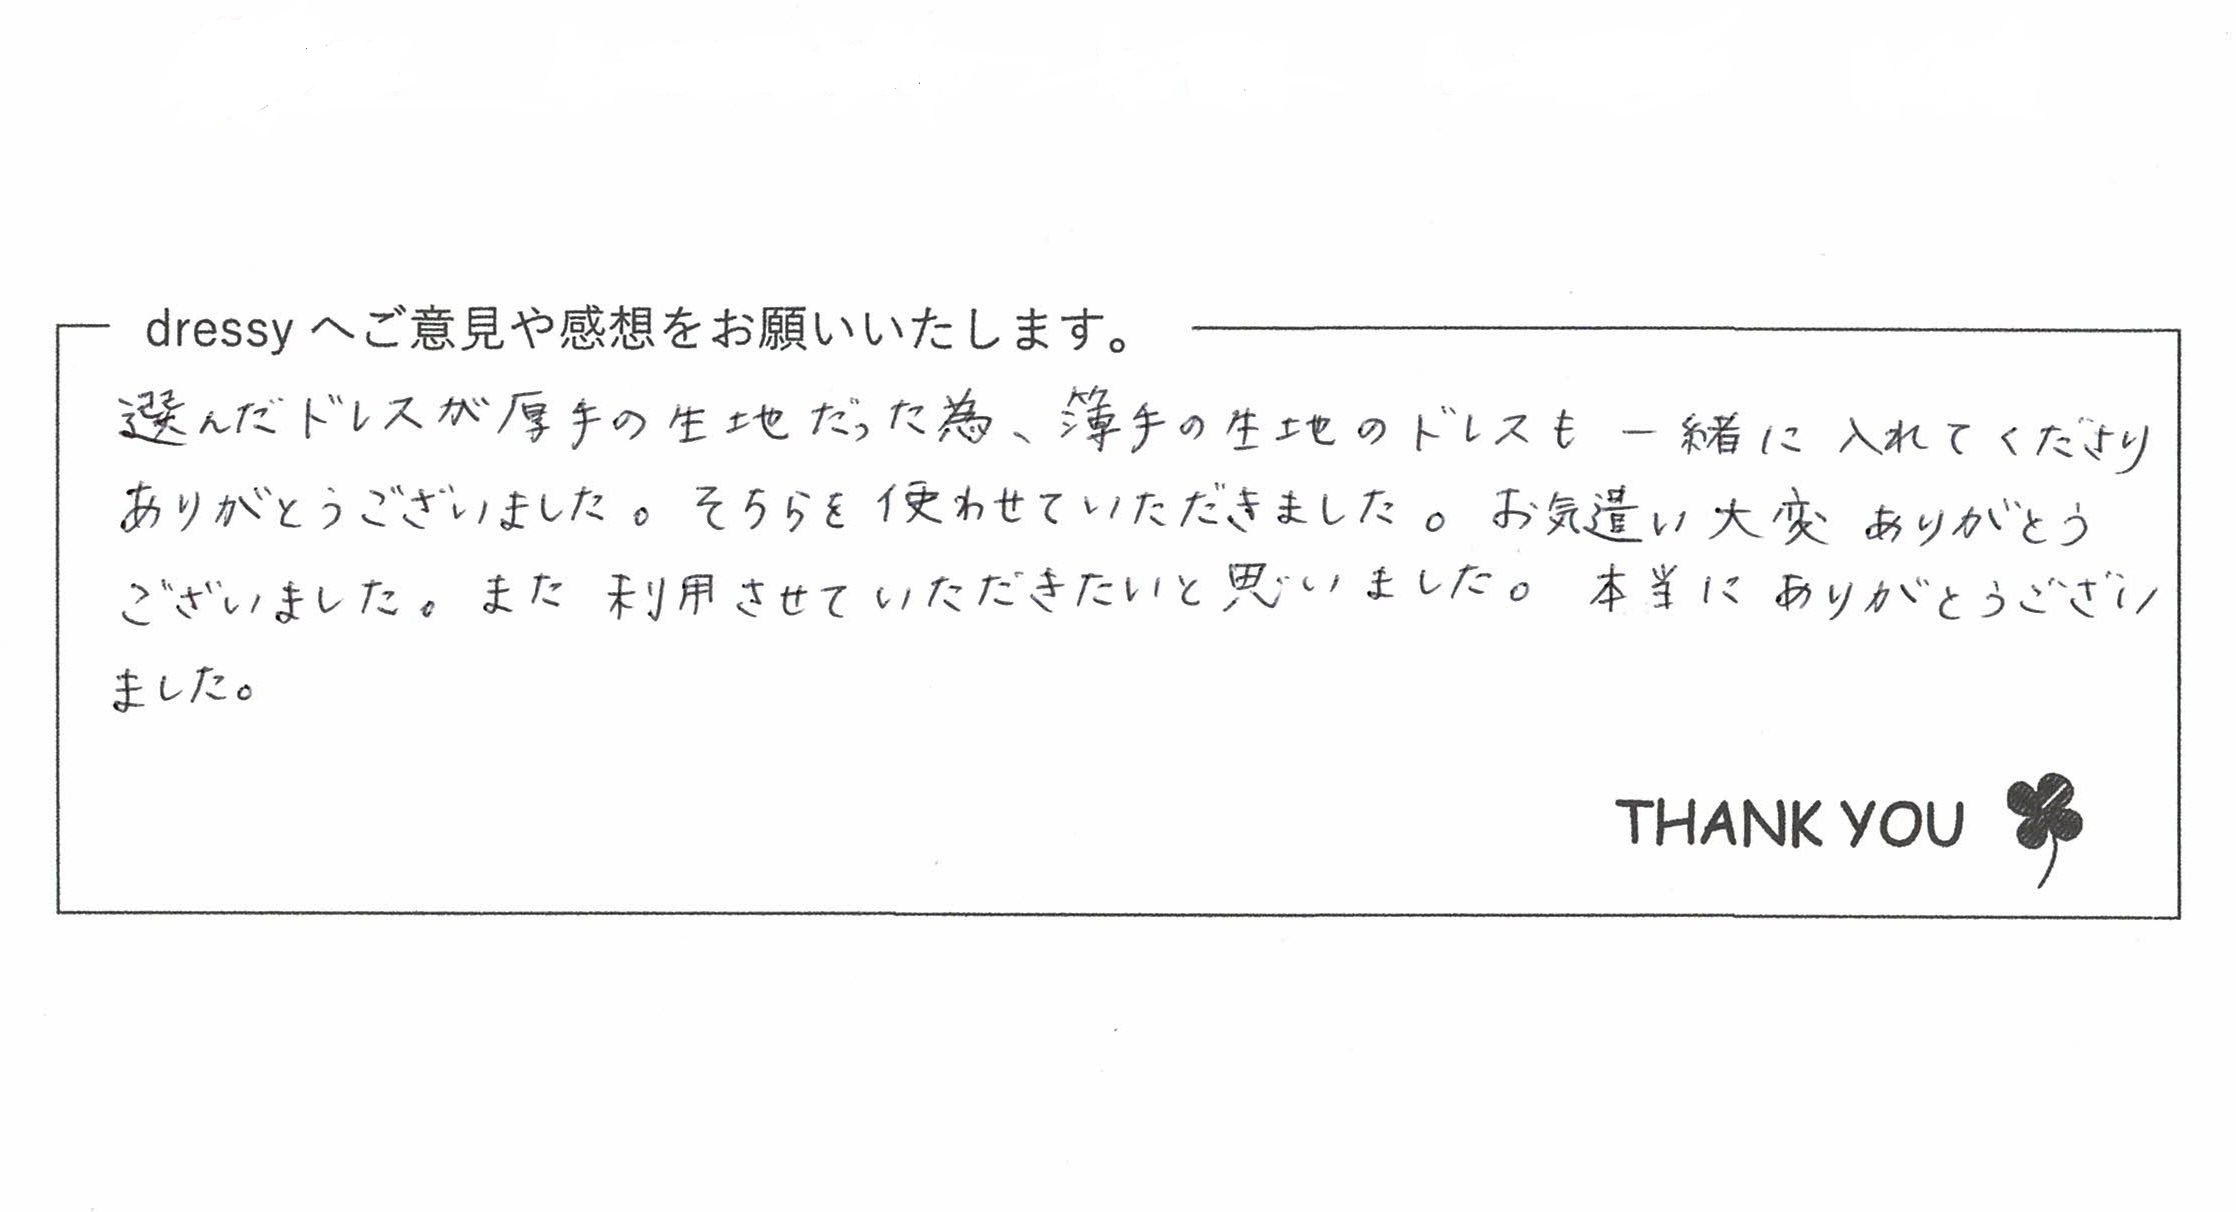 dressy へご意見や感想をお願いいたします。
選んだドレスが厚手の生地だった為、簿手の生地のドレスも 一緒に 入れてくださり
ありがとうございました。そちらを 使わせていただきました。お気遣い 大変 ありがとう
ございました。また 利用させていただきたいと 思いました。本当に ありがとうござい
ました。
THANK YOU